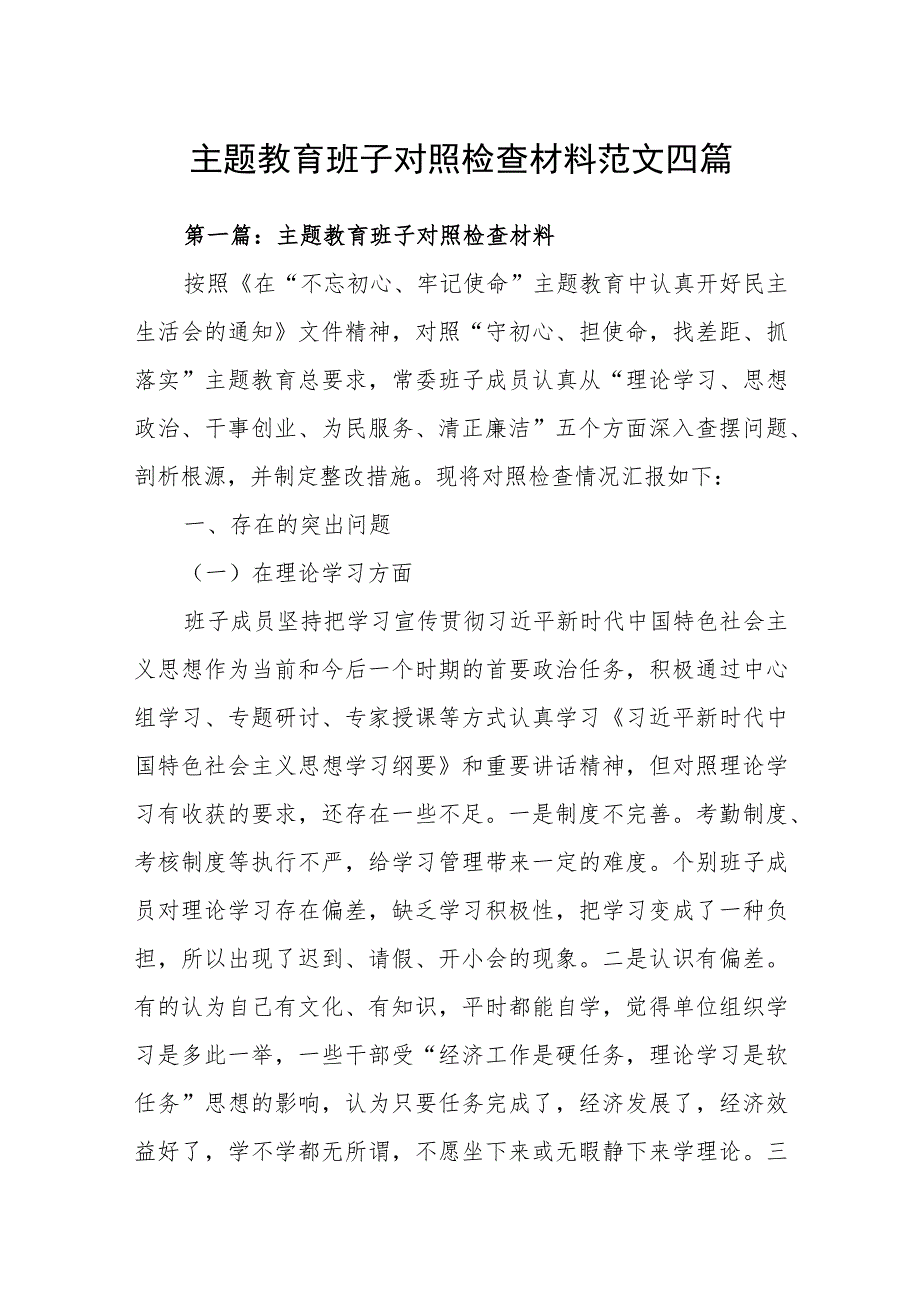 主题教育班子对照检查材料范文四篇
第一篇：主题教育班子对照检查材料
按照《在“不忘初心、牢记使命”主题教育中认真开好民主
生活会的通知》文件精神，对照“守初心、担使命，找差距、抓
落实”主题教育总要求，常委班子成员认真从“理论学习、思想
政治、干事创业、为民服务、清正廉洁”五个方面深入查摆问题、
剖析根源，并制定整改措施。现将对照检查情况汇报如下：
一、存在的突出问题
（一）在理论学习方面
班子成员坚持把学习宣传贯彻习近平新时代中国特色社会主
义思想作为当前和今后一个时期的首要政治任务，积极通过中心
组学习、专题研讨、专家授课等方式认真学习《习近平新时代中
国特色社会主义思想学习纲要》和重要讲话精神，但对照理论学
习有收获的要求，还存在一些不足。一是制度不完善。考勤制度、
考核制度等执行不严，给学习管理带来一定的难度。个别班子成
员对理论学习存在偏差，缺乏学习积极性，把学习变成了一种负
担，所以出现了迟到、请假、开小会的现象。二是认识有偏差。
有的认为自己有文化、有知识，平时都能自学，觉得单位组织学
习是多此一举，一些干部受“经济工作是硬任务，理论学习是软
任务”思想的影响，认为只要任务完成了，经济发展了，经济效
益好了，学不学都无所谓，不愿坐下来或无暇静下来学理论。三